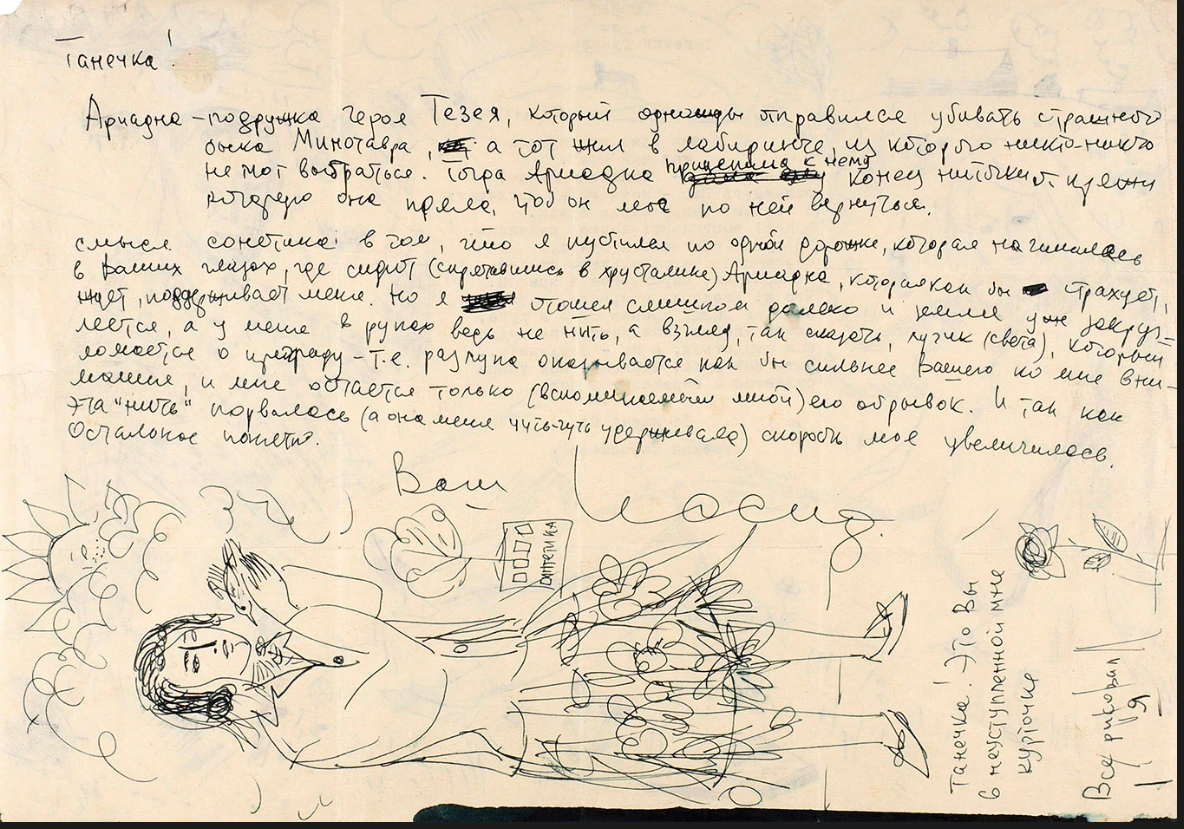 Танечка!
Ариадна – подружка героя Тезея, который однажды отправился убивать страшного
быка Минотавра, а тот жил в лабиринте, из которого никто-никто
не мог выбраться. Тогда Ариадна прицепила к нему конец ниточки
она пряла, чтоб он мог по ней вернуться.
смысл сонетика в том, что я пустился по одной дорожке, которая начиналась
в Ваших глазах, где сидит (спрятавшись в хрусталике) Ариадна, которая как бы страхует,
ждет, поддерживает меня. Но я отошел слишком далеко и земля уже закруг-
ляется, а у меня в руках ведь не нить, а взгляд, так сказать, лучик (света), который
ломается о преграду – т.е. разлука оказывается как бы сильнее Вашего ко мне вни-
мания, и мне остается только (вспоминаемый мной) его обрывок. И так как
эта "нить" порвалась (а она меня чуть-чуть удерживала) скорость моя увеличилась.
Остальное понятно.
Ваш Иосиф.
аптетика
Танечка! Это Вы
в неуступленной мне
курточке
Все рисовал
я